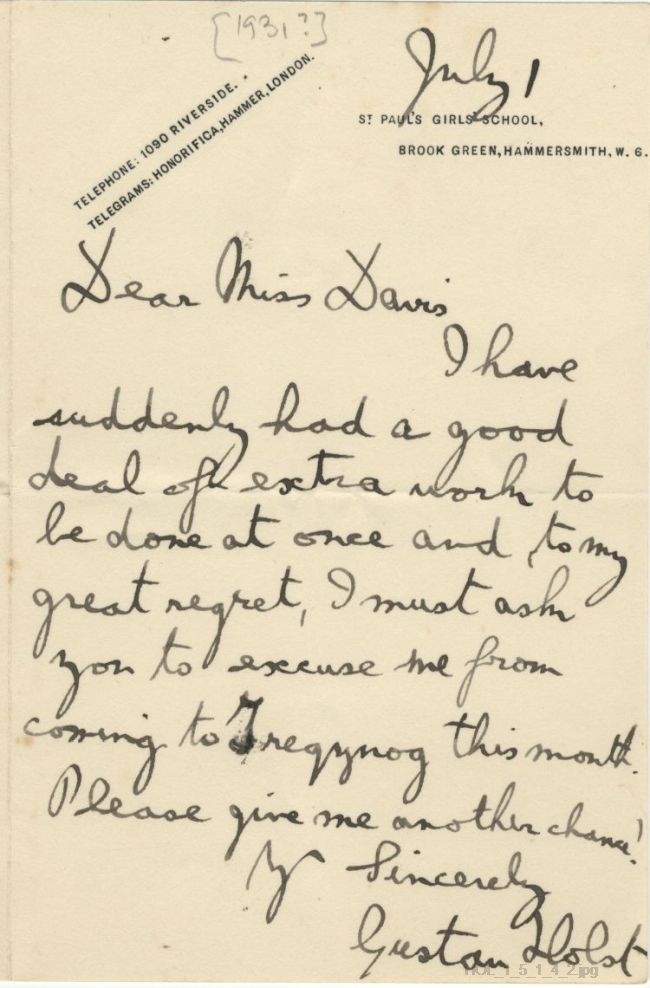 [1931?]
July 1
TELEPHONE: 1090 RIVERSIDE.
TELEGRAMS: HONORIFICA, HAMMER, LONDON.
ST PAUL'S GIRLS' SCHOOL,
BROOK GREEN, HAMMERSMITH, W. 6.
Dear Miss Davis
I have
suddenly had a good
deal of extra work to
be done at once and, to my
great regret, I must ask
you to excuse me from
coming to Tregynog this month.
Please give me another chance!
Yr Sincerely
Gustav Holst
HOL_1_5_1_4_2.jpg